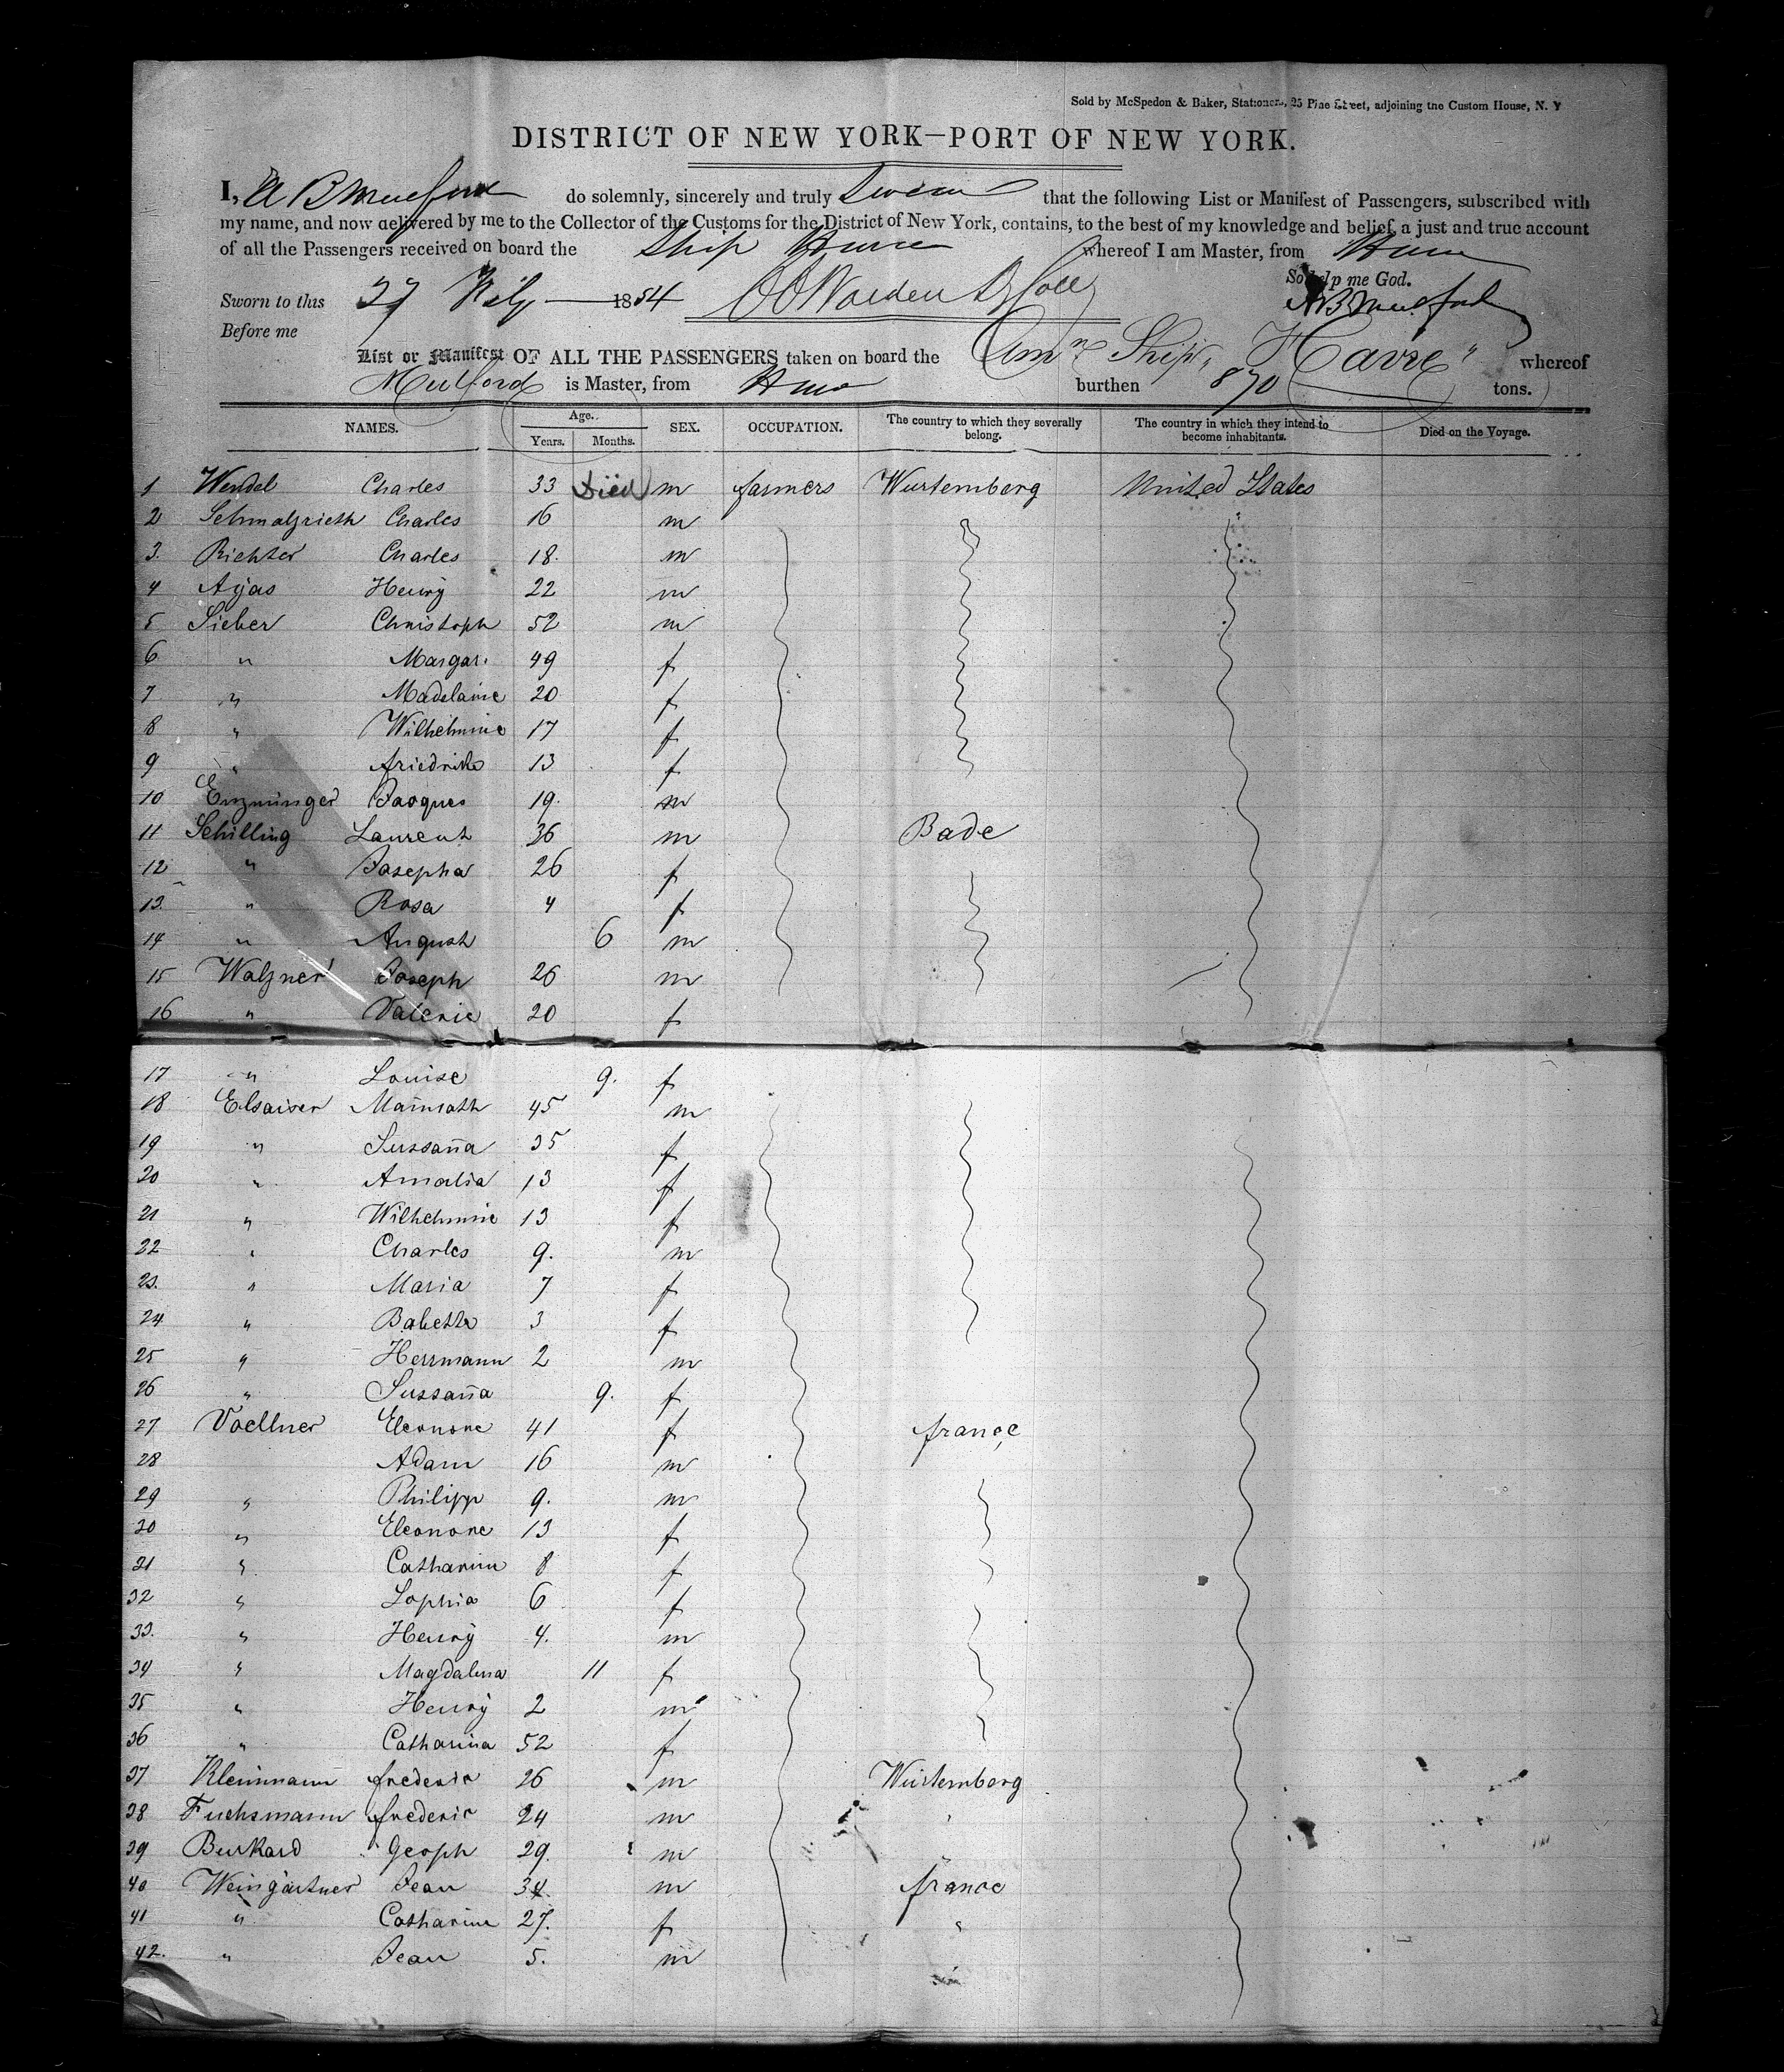 Sold by McSpedon & Baker, Stationers, 25 Pine Street, adjoining the Custom House, N. Y
DISTRICT OF NEW YORK—PORT OF NEW YORK.
I, A B Mulford do solemnly, sincerely and truly swear that the following List or Manifest of Passengers, subscribed with
my name, and now delivered by me to the Collector of the Customs for the District of New York, contains, to the best of my knowledge and belief, a just and true account
of all the Passengers received on board the Ship Havre whereof I am Master, from Havre
So help me God.
Sworn to this 27 1854 A B Mulford
Before me
List or Manifest OF ALL THE PASSENGERS taken on board the Amn Ship "Havre" whereof
Mulford is Master, from Havre burthen 870 tons.
NAMES. Age. SEX. OCCUPATION. The country to which they severally belong. The country in which they intend to become inhabitants. Died on the Voyage.
Years. Months.
1 Wendel Charles 33 Died m farmers Wurtemberg United States
2 Schmalzrieth Charles 16 m
3. Richter Charles 18. m
4 Ayas Henry 22 m
5 Sieber Christoph 52 m
6 " Margar. 49 f
7 " Madelaine 20 f
8 " Wilhelmine 17 f
9 " friedrike 13 f
10 Enzminger Jacques 19. m
11 Schilling Laurent 36 m Bade
12 " Josepha 26 f
13. " Rosa 4 f
14 " August 6 m
15 Walzner Joseph 26 m
16 " Valerie 20 f
17 " Louise 9. f
18 Elsaiser 45 m
19 " Sussaña 35 f
20 " Amalia 13 f
21 " Wilhelmine 13 f
22 " Charles 9. m
23. " Maria 7 f
24 " Babette 3 f
25 " Herrmann 2 m
26 " Sussaña 9. f
27 Voellner Eleonore 41 f france
28 Adam 16 m
29 " Philipp 9. m
30 " Eleonore 13 f
31 " Catharine 8 f
32 " Sophia 6 f
33. " Henry 4. m
34 " Magdalena 11 f
35 " Henry 2 m
36 " Catharina 52 f
37 Kleinmann frederic 26 m Wurtemberg
38 Fuchsmann frederic 24 m "
39 Burkard Geoph 29. m "
40 Weingärtner Jean 34. m france
41 " Catharine 27. f "
42. " Jean 5. m "